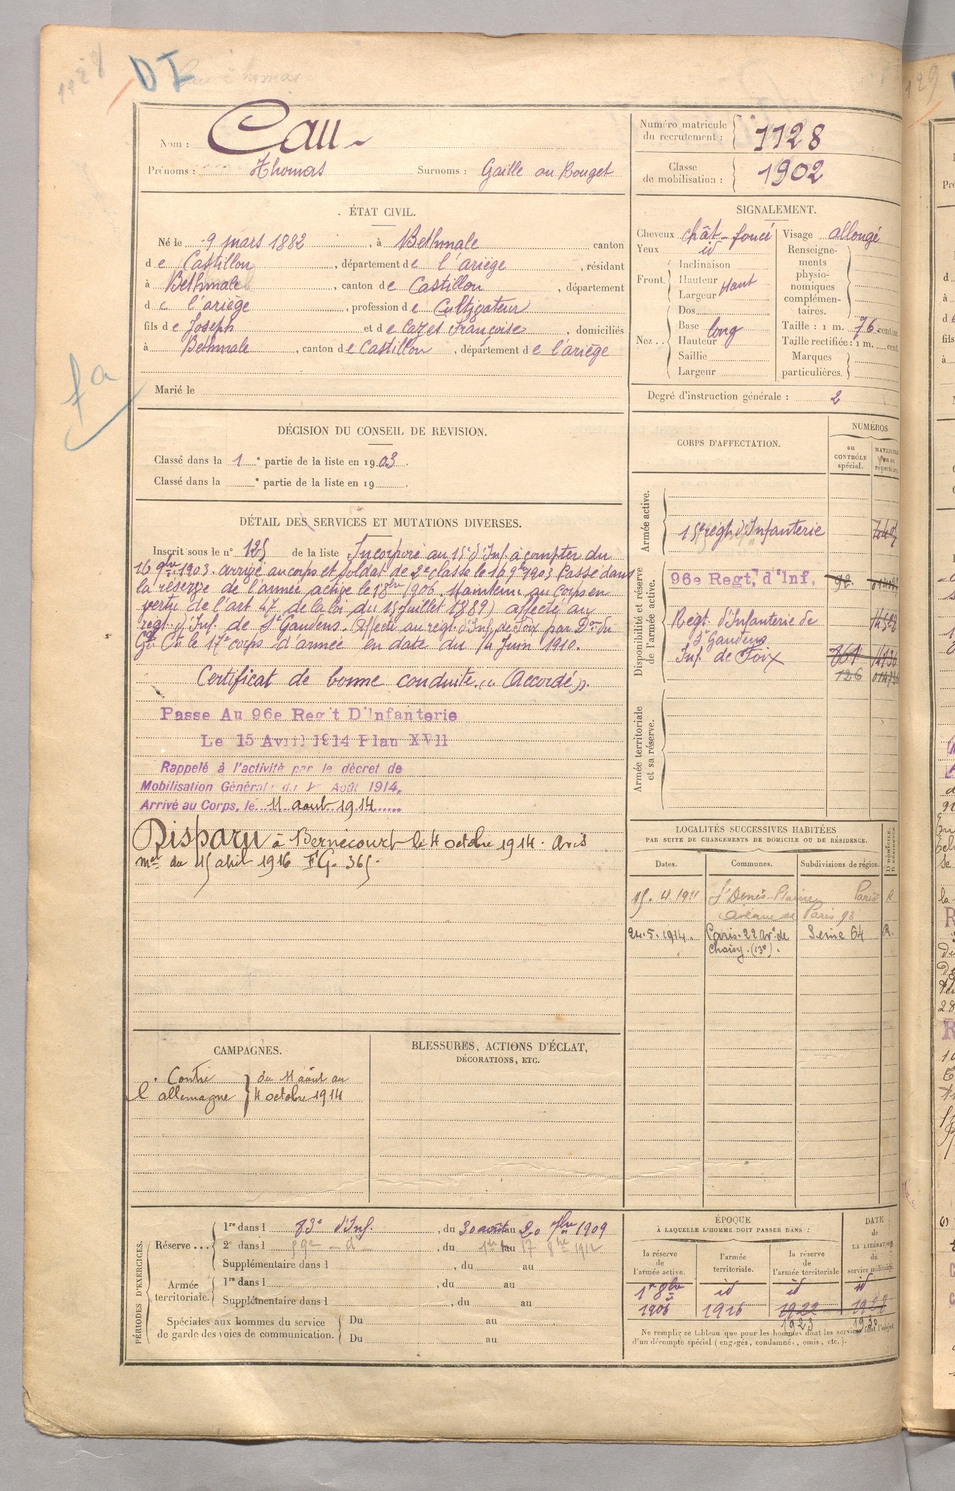 1128
DI
Nom : Cau
Prénoms : Thomas Surnoms : Gaille ou Bouget
Numéro matricule du recrutement : 1128
Classe de mobilisation : 1902
ÉTAT CIVIL.
Né le 9 mars 1882, à Bethmale canton
de Castillon, département de l'ariège, résidant
à Bethmale, canton de Castillon, département
de l'ariège, profession de Cultivateur
fils de Joseph et de Cazet Françoise, domiciliés
à Bethmale, canton de Castillon, département de l'ariège
Marié le
fa
SIGNALEMENT.
Cheveux chât-foncé Visage allongé
Yeux id
Renseignements physionomiques complémentaires.
Front. Inclinaison
Hauteur haut
Largeur
Nez.. Dos
Base long
Hauteur
Saillie
Largeur
Taille : 1 m. 76 cent.
Taille rectifiée : 1 m. cent.
Marques particulières.
Degré d'instruction générale : 2
DÉCISION DU CONSEIL DE REVISION.
Classé dans la 1e partie de la liste en 1903.
Classé dans la e partie de la liste en 19
DÉTAIL DES SERVICES ET MUTATIONS DIVERSES.
Inscrit sous le n° 125 de la liste Incorporé au 15e d'Inf. à compter du
16 9bre 1903. arrivé au corps et soldat de 2e classe le 16 9bre 1903 Passé dans
la réserve de l'armée active le 1er 8bre 1906. Maintenu au Corps en
vertu de l'art 47 de la loi du 15 juillet 1889) affecté au
régt d'Inf. de St Gaudens. Affecté au régt d'Inf. de Foix par Don du
Gal Ct le 17e corps d'armée en date du 14 Juin 1910.
Certificat de bonne conduite "Accordé".
Passe Au 96e Reg't D'Infanterie
Le 15 Avril 1914 Plan XVII
Rappelé à l'activité par le décret de
Mobilisation Générale du 1er Août 1914.
Arrivé au Corps, le 11 août 1914
Disparu à Bernécourt le 4 octobre 1914. avis
mel du 15 avril 1916 FG- 365.
CORPS D'AFFECTATION.
NUMÉROS
au CONTRÔLE spécial.
Armée active.
15e régt d'Infanterie
Disponibilité et réserve de l'armée active.
96e Regt, d'Inf,
Régt d'Infanterie de
St Gaudens
Inf. de Foix
126
Armée territoriale et sa réserve.
LOCALITÉS SUCCESSIVES HABITÉES
PAR SUITE DE CHANGEMENTS DE DOMICILE OU DE RÉSIDENCE.
Dates. Communes. Subdivisions de région.
15.4.1911 St Denis-Plaine Paris R
avenue de Paris 98
24.5.1914 Paris. 22 Av. de Seine 64 R.
Choisy. (13e).
CAMPAGNES.
Contre l'allemagne du 11 août au
4 octobre 1914
BLESSURES, ACTIONS D'ÉCLAT,
DÉCORATIONS, ETC.
PÉRIODES D'EXERCICES.
Réserve... 1re dans l 83e d'Inf., du 30 août au 20 7bre 1909
2e dans l 59e - d -, du 1er au 17 8bre 1912
Supplémentaire dans l, du au
Armée territoriale. 1re dans l, du au
Supplémentaire dans l, du au
Spéciales aux hommes du service Du au
de garde des voies de communication. Du au
ÉPOQUE
À LAQUELLE L'HOMME DOIT PASSER DANS :
la réserve de l'armée active. l'armée territoriale. la réserve de l'armée territoriale.
DATE de LA LIBÉRATION du service militaire.
1er 8bre id id id
1906 1916 1922
1923
Ne remplir ce tableau que pour les hommes dont les services font l'objet
d'un décompte spécial (engagés, condamnés, omis, etc.).